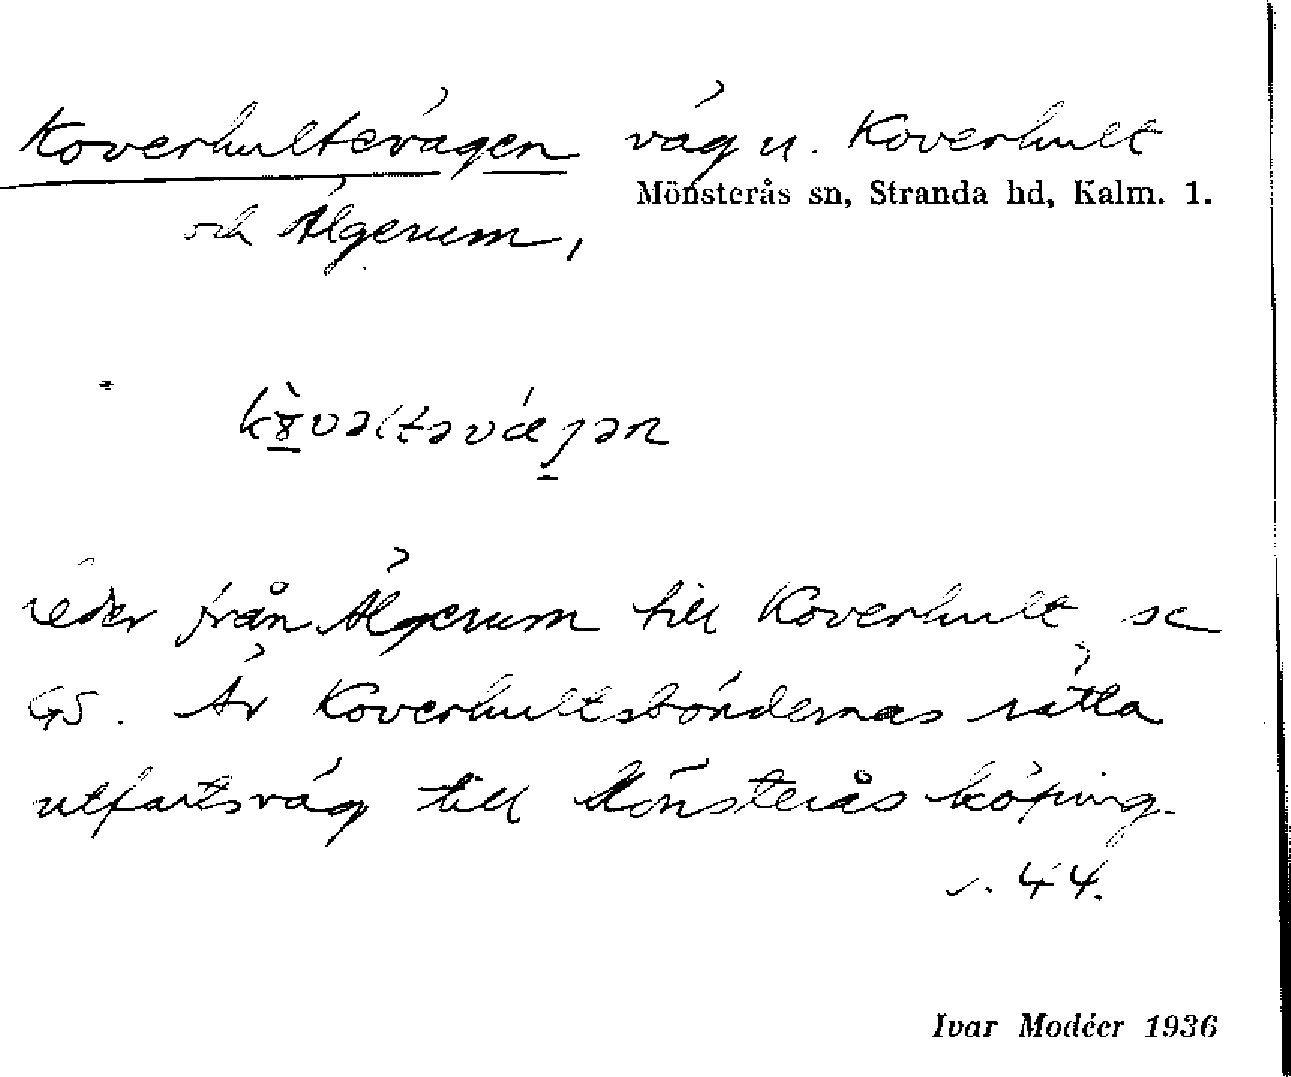 Koverhultevägen väg u. Koverhult
Mönsterås sn, Stranda hd, Kalm. l.
och Älgerum,
leder från Älgerum till Koverhult, se
GS. Är Koverhultsböndernas rätta
utfartsväg till Mönsterås köping.
s. 44.
Ivar Modéer 1936